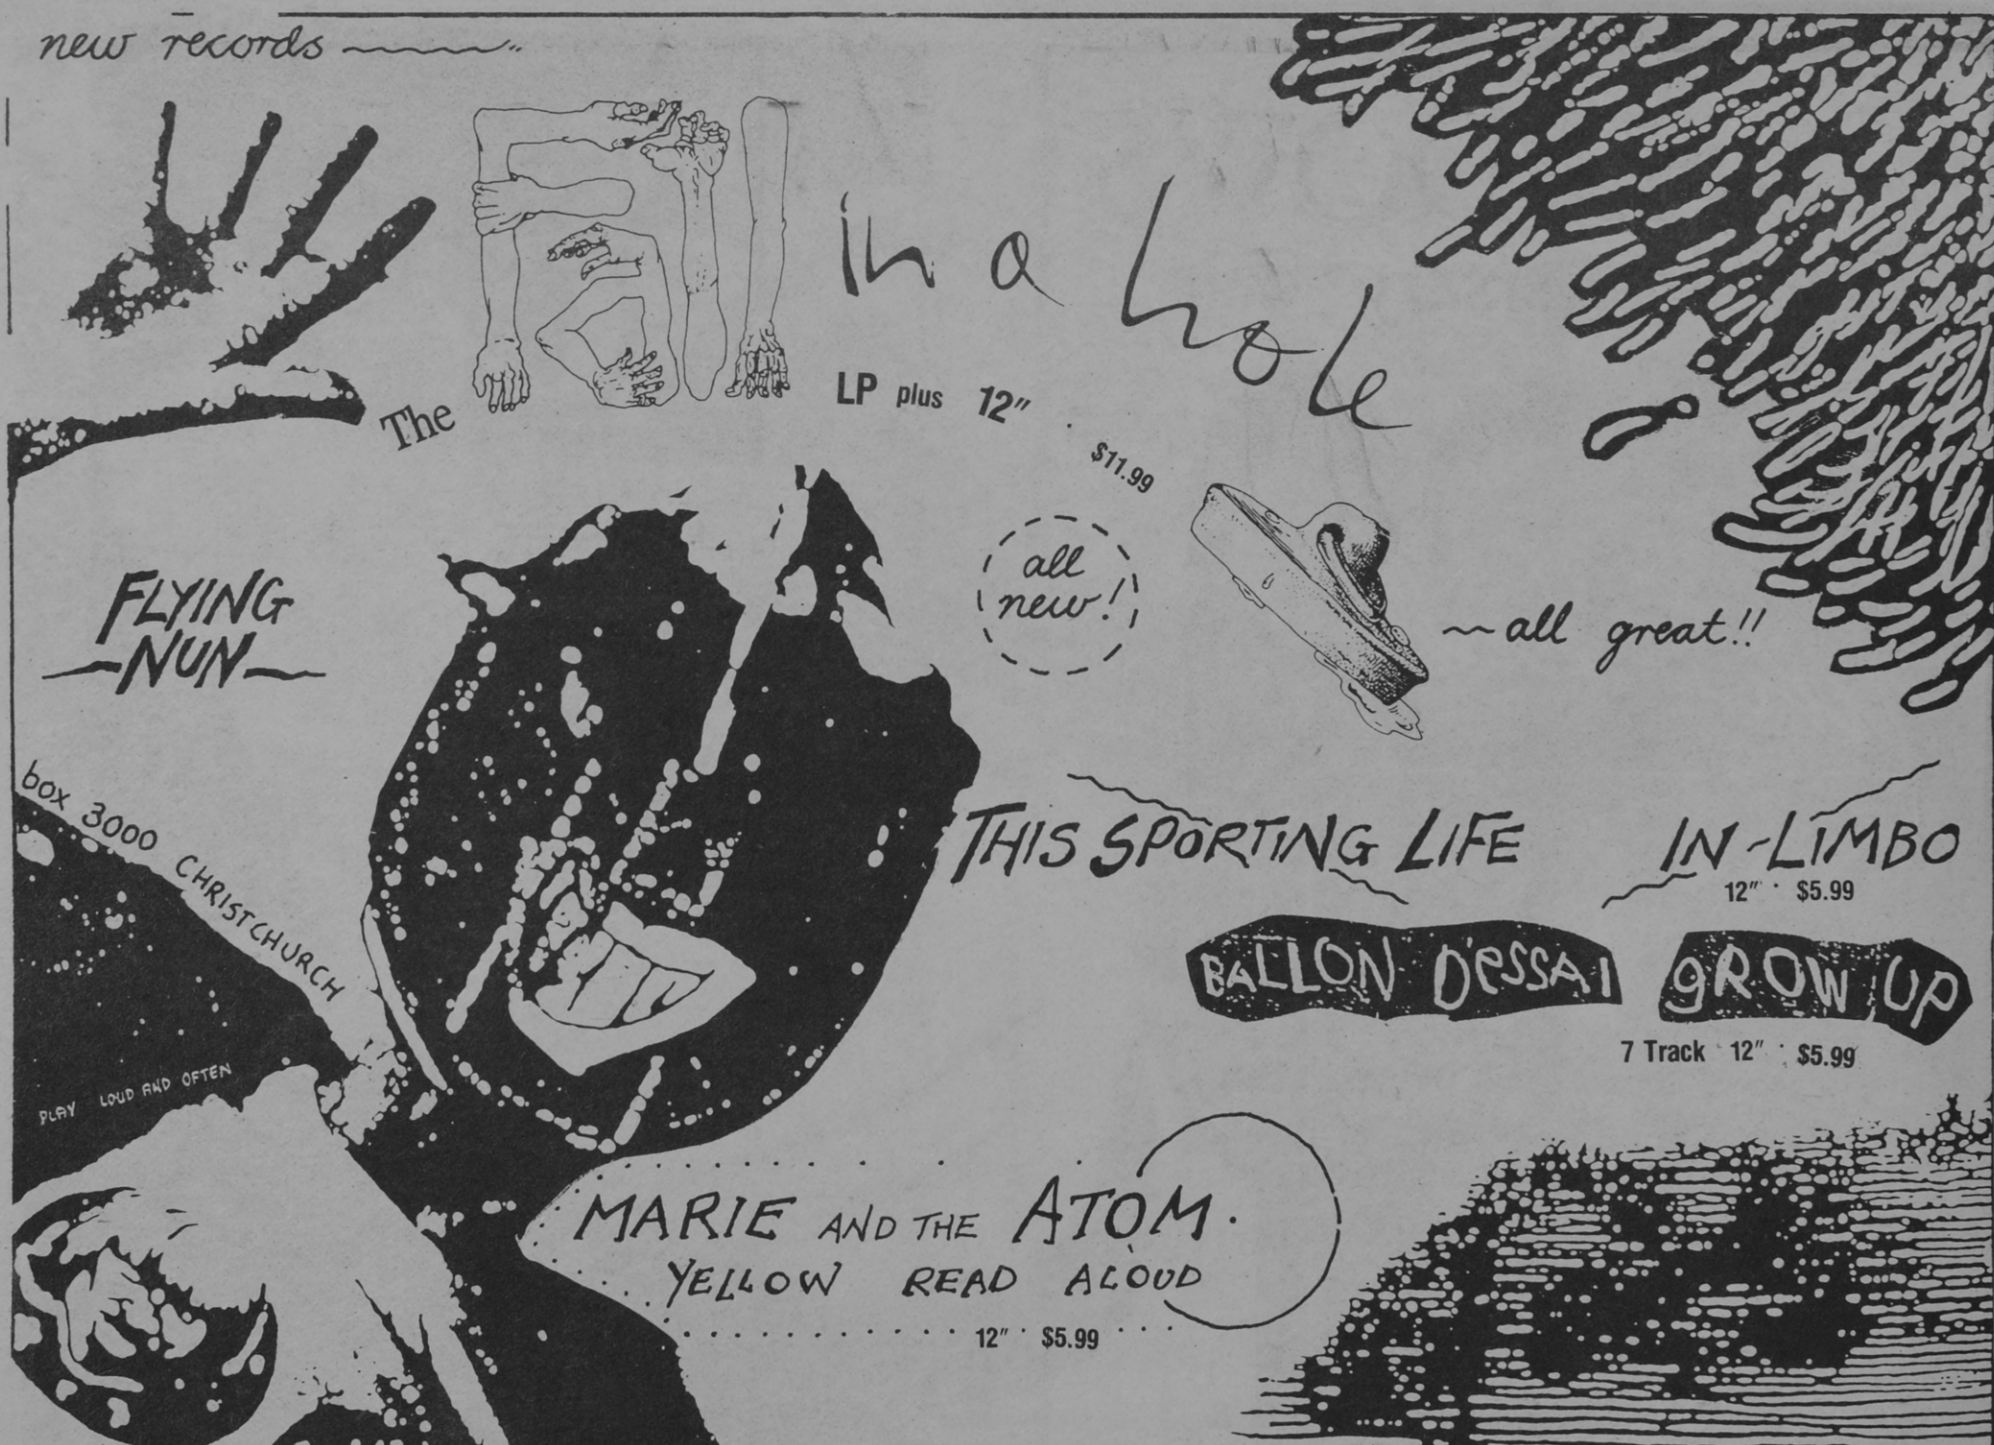 new records
The FALL in a hole
LP plus 12"
$11.99
all
new!
all great!!
FLYING
NUN
box 3000 CHRISTCHURCH
PLAY LOUD AND OFTEN
THIS SPORTING LIFE IN-LIMBO
12" $5.99
BALLON D'ESSAI GROW UP
7 Track 12" $5.99
MARIE AND THE ATOM.
YELLOW READ ALOUD
12" $5.99